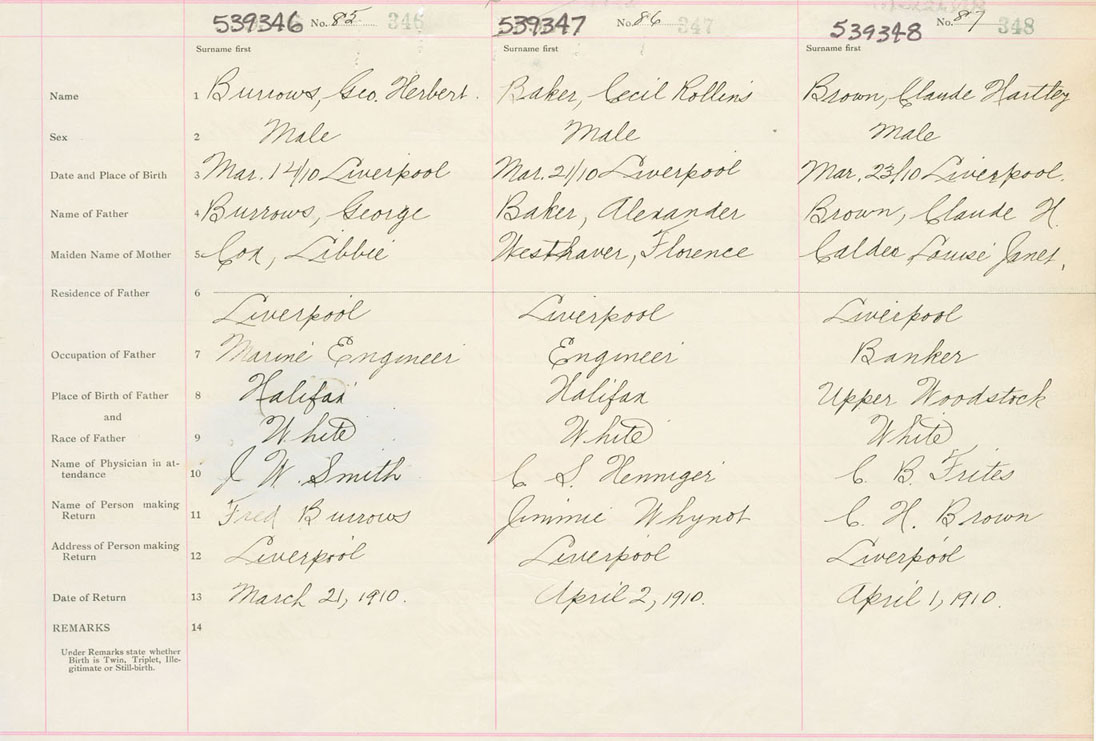 539346 No. 85 346 539347 No. 86 347 539348 No. 87 348
Surname first Surname first Surname first
Name 1 Burrows, Geo. Herbert. Baker, Cecil Rollins Brown, Claude Hartley
Sex 2 Male Male Male
Date and Place of Birth 3 Mar. 14/10 Liverpool Mar. 21/10 Liverpool Mar. 23/10 Liverpool.
Name of Father 4 Burrows, George Baker, Alexander Brown, Claude H.
Maiden Name of Mother 5 Cox, Libbie Westhaver, Florence Calder Louise Janet,
Residence of Father 6
Liverpool Liverpool Liverpool
Occupation of Father 7 Marine Engineer Engineer Banker
Place of Birth of Father 8 Halifax Halifax Upper Woodstock
and
Race of Father 9 White White White
Name of Physician in at-
tendance 10 J. W. Smith C S. Henniger C. B. Trites
Name of Person making
Return 11 Fred Burrows Jimmie Whynot C. H. Brown
Address of Person making
Return 12 Liverpool Liverpool Liverpool
Date of Return 13 March 21, 1910. April 2, 1910. April 1, 1910.
REMARKS 14
Under Remarks state whether
Birth is Twin, Triplet, Ille-
gitimate or Still-birth.